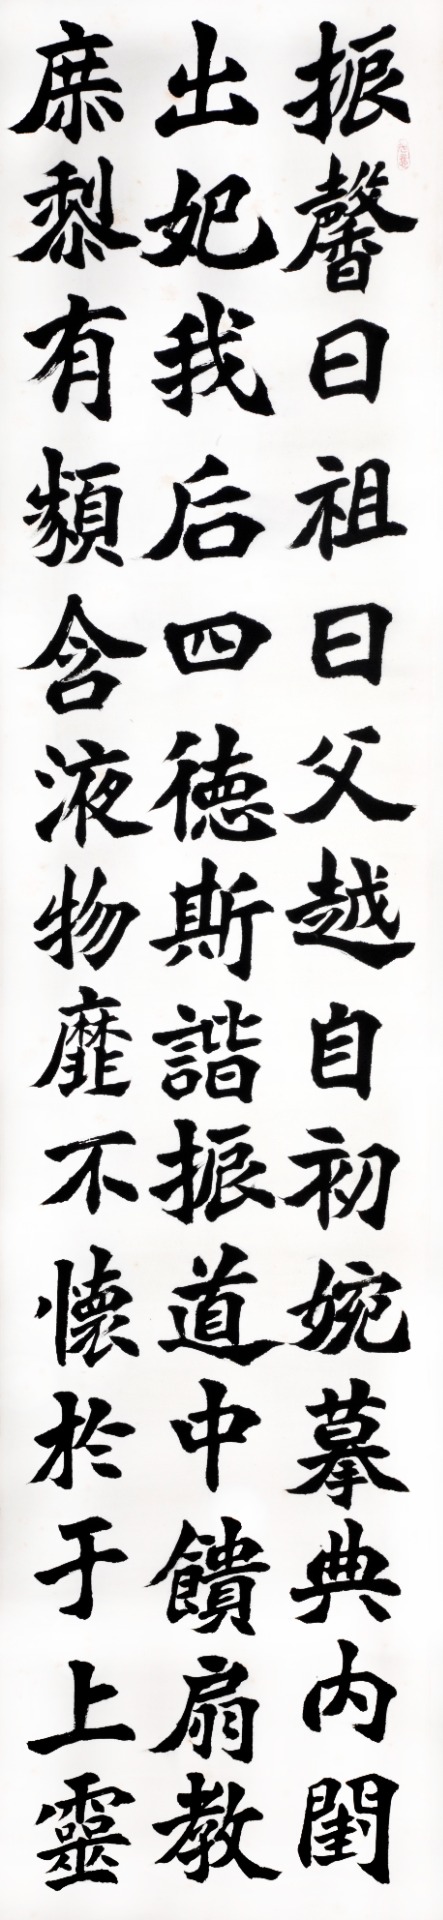 振馨曰祖曰父越自初婉摹典内閨
出妃我后四徳斯諧振道中饋扇教
庶黎有含液物靡不懐於于上靈